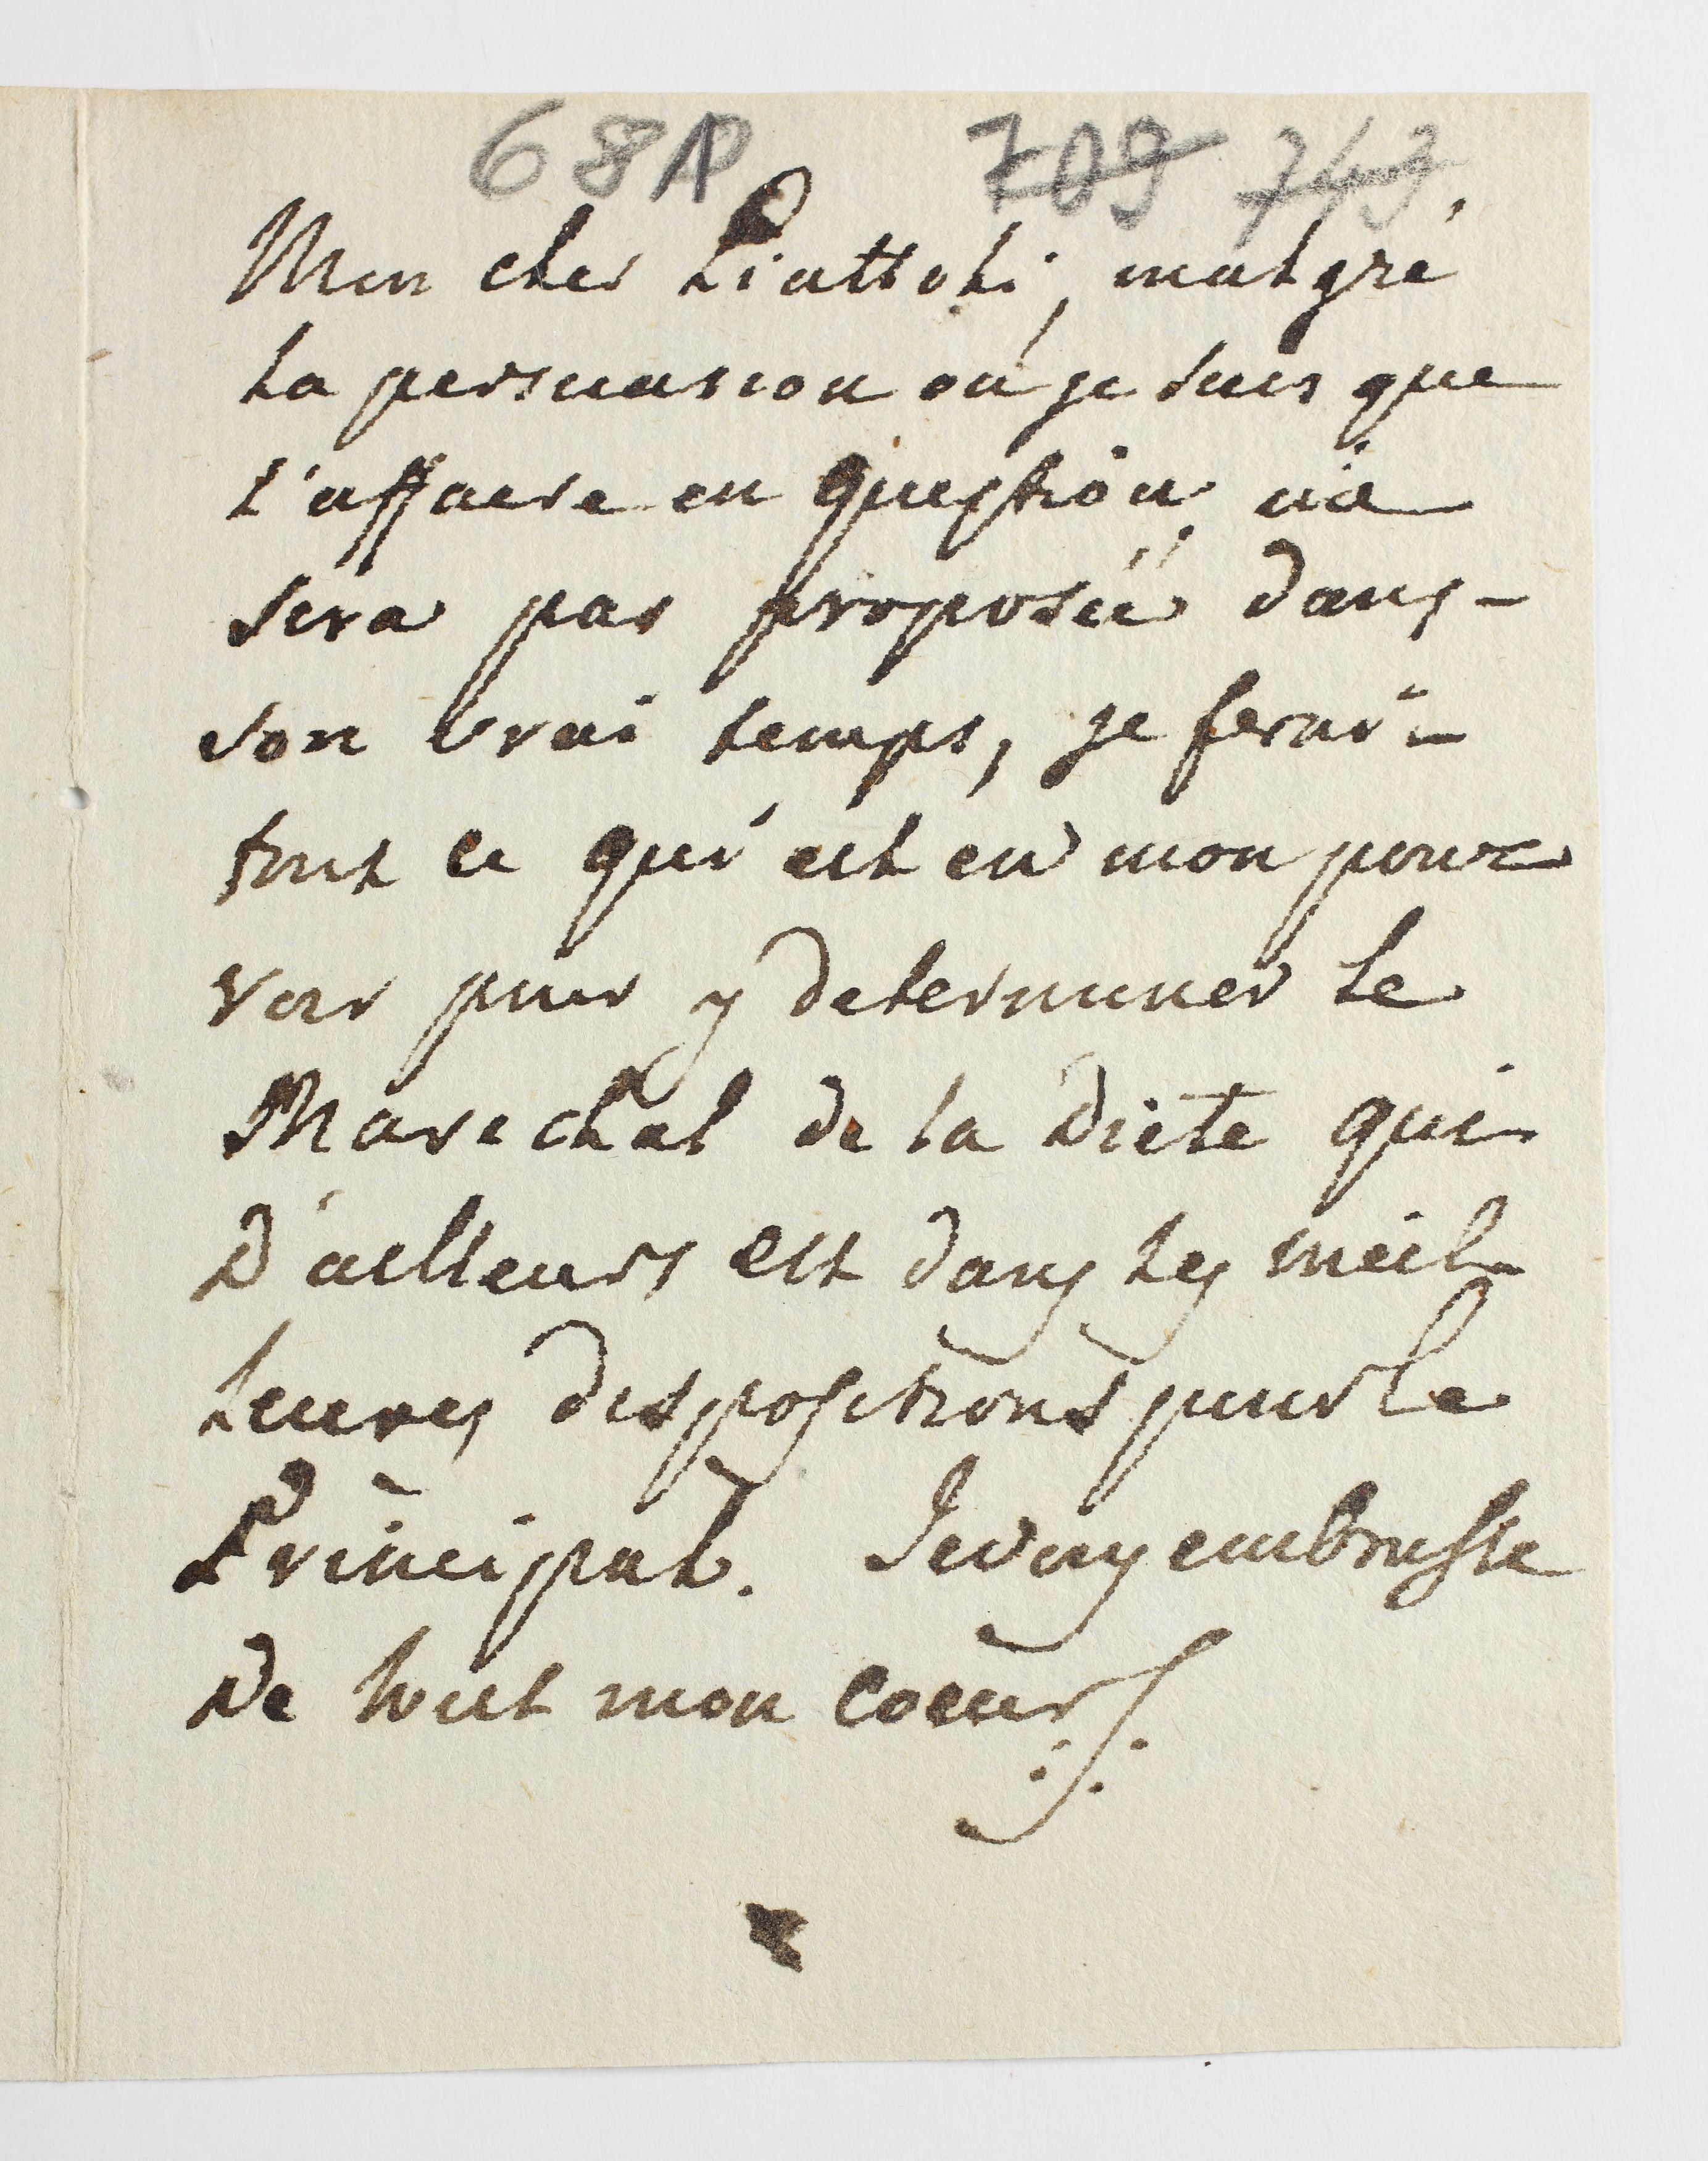 681 709 743
Mon cher Piattoli, malgré
la persuasion où je suis que
l'affaire en question ne
sera pas proposée dans
son vrai temps, je ferai
tout ce qui est en mon pou-
voir pour y determiner le
Marechal de la Diète qui
d'ailleurs est dans les meil-
leures dispositions pour le
Principal. Je vous embrasse
de tout mon coeur